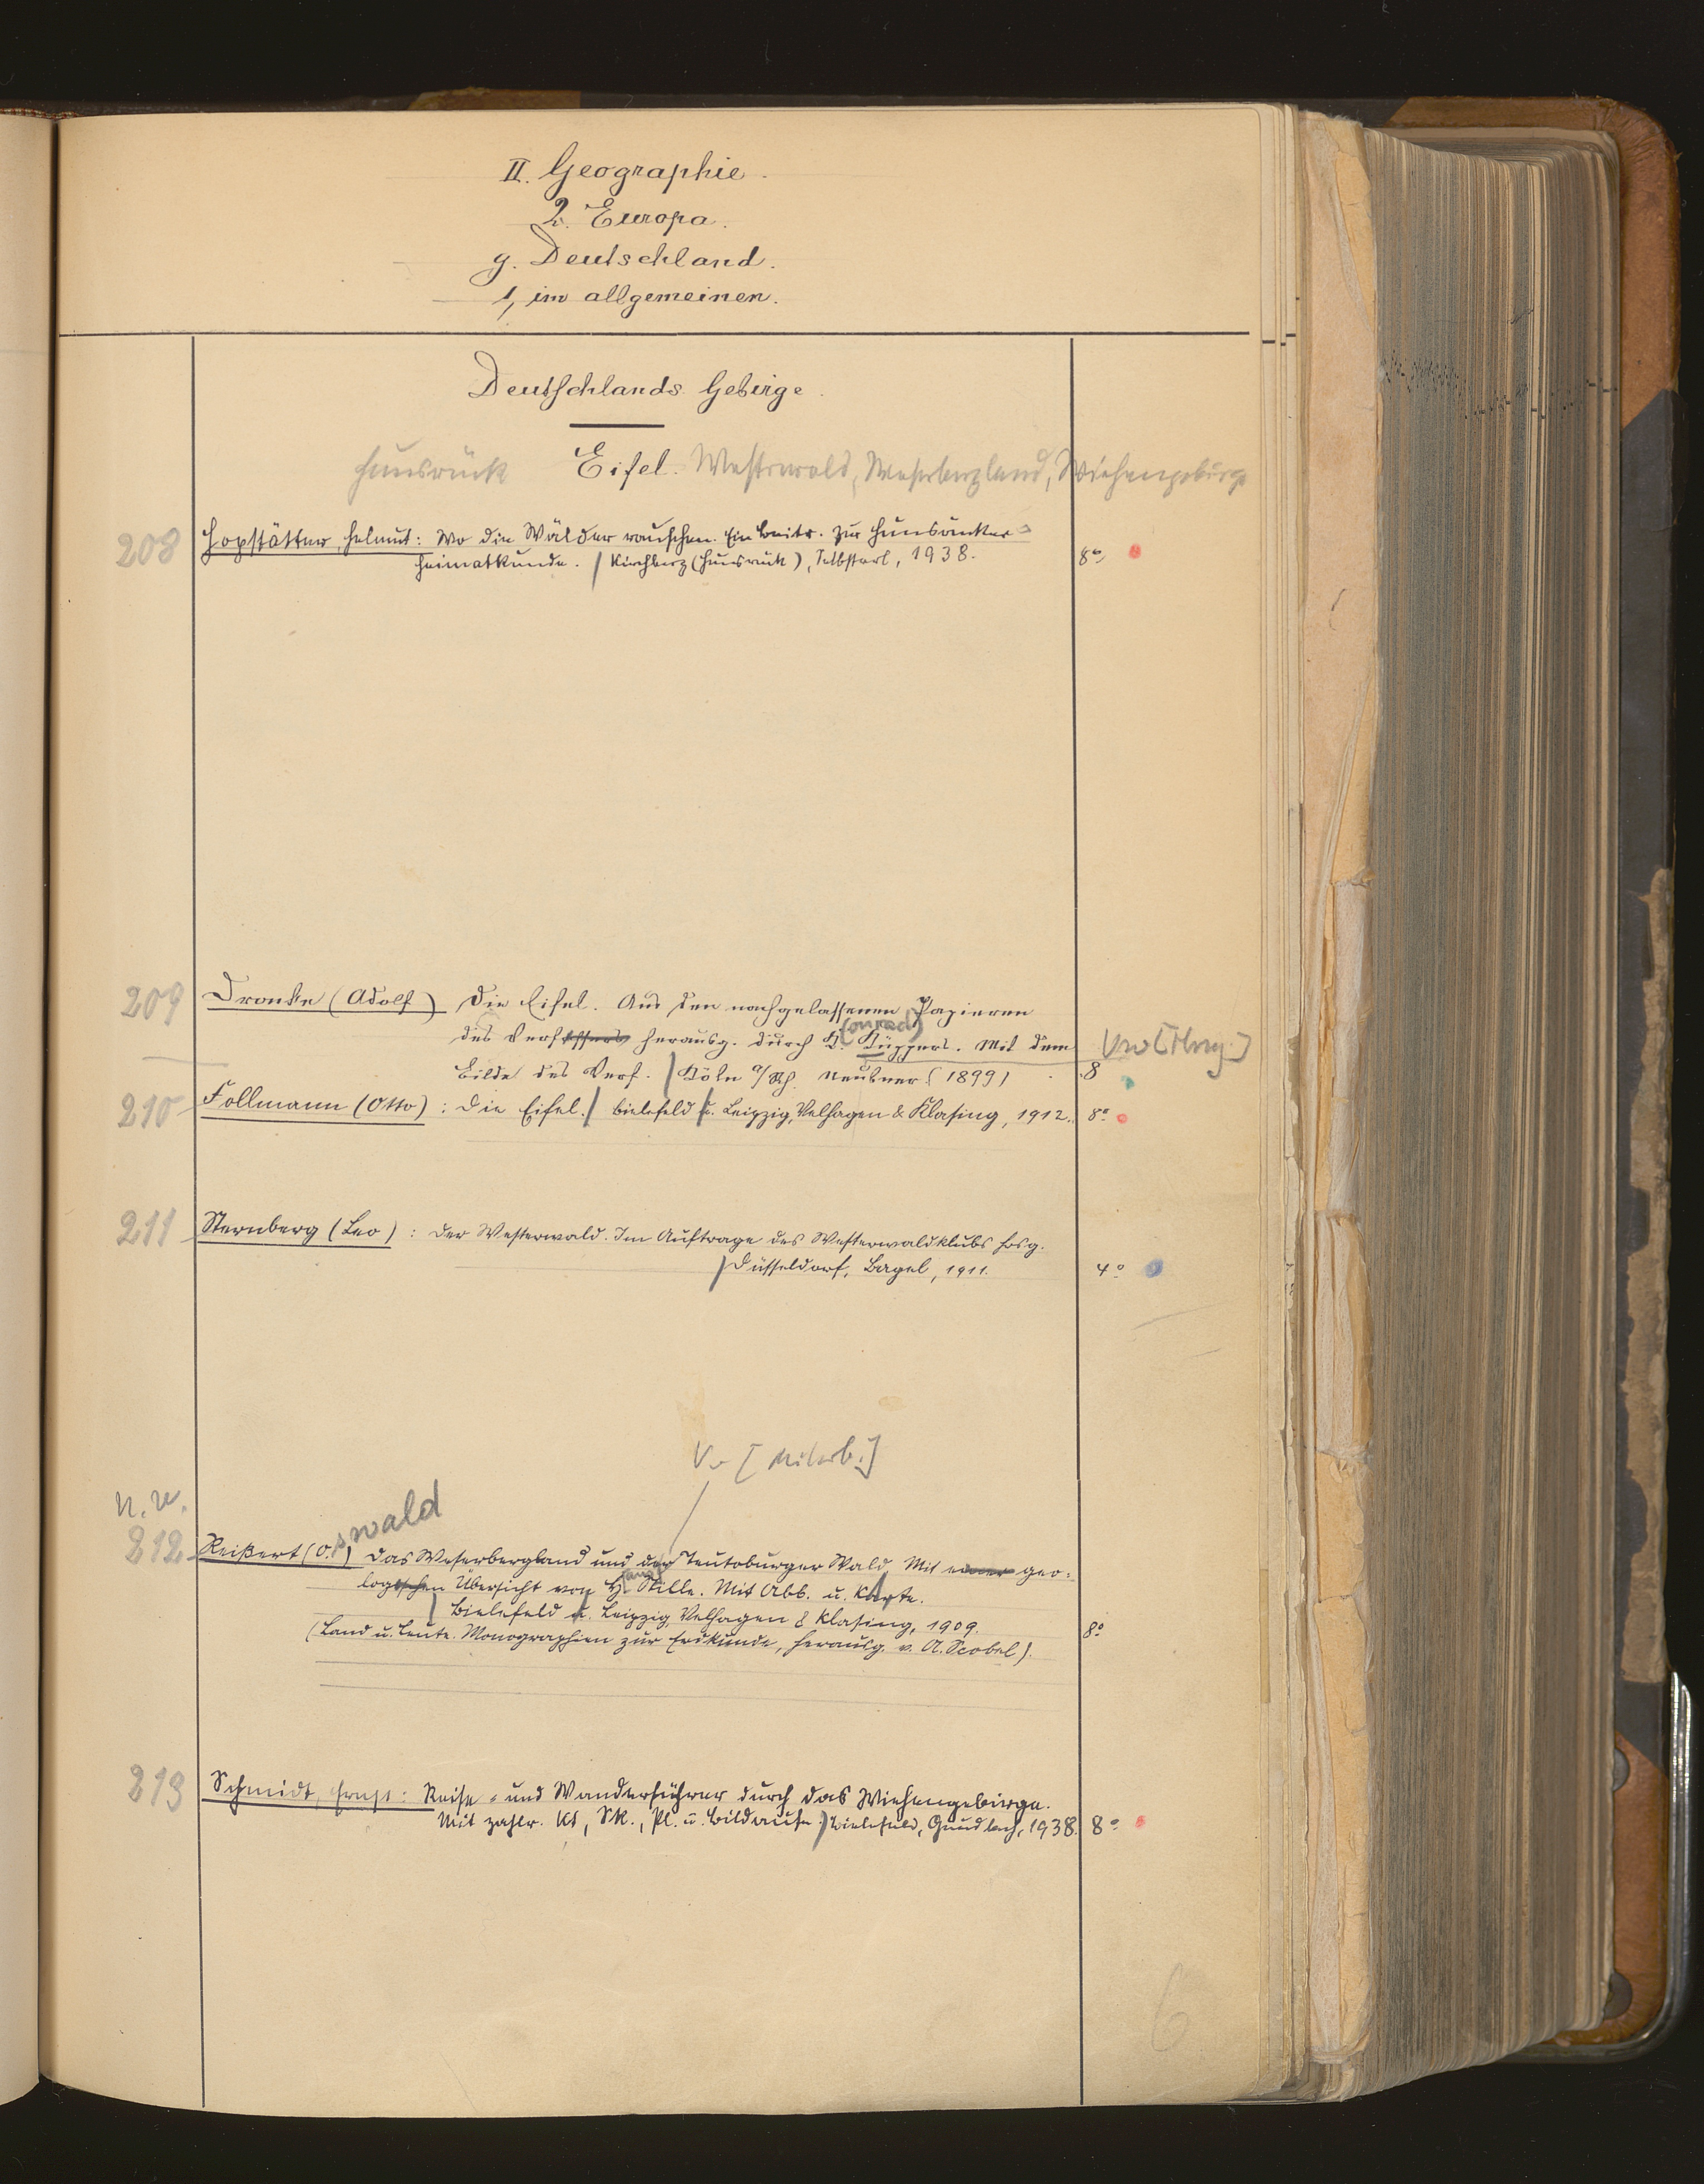 II. Geographie.
2. Europa.
g. Deutschland.
1, im allgemeinen.
Deutschlands Gebirge.
Hunsrück Eifel. Westerwald, Weserbergland, Wiehengebirge
208 Hopstätter, Helmut: Wo die Wälder rauschen. Ein Beitr. zur Hunsrücker
Heimatkunde. / Kirchberg (Hunsrück), Selbstverl., 1938. 8°
209 Dronke (Adolf) Die Eifel. Aus den nachgelassenen Papieren
des Verfassers herausg. durch K.(onrad) Küppers. Mit dem Vw [Hrsg.]
Bilde des Verf. / Köln a/Rh. Neubner (1899) 8
210 Follmann (Otto): Die Eifel. / Bielefeld u. Leipzig, Velhagen & Klasing, 1912. 8°
211 Sternberg (Leo): Der Westerwald. Im Auftrage des Westerwaldklubs hrsg.
/ Düsseldorf, Bagel, 1911. 4°
Vw [Mitarb.]
n. w.
212 Reißert (O.swald) Das Weserbergland und der Teutoburger Wald. Mit einer geo=
logischen Übersicht von H.ans Stille. Mit Abb. u. Karte.
/ Bielefeld u. Leipzig, Velhagen & Klasing, 1909.
(Land u. Leute. Monographien zur Erdkunde, herausg. v. A. Scobel). 8°
213 Schmidt, Ernst: Reise- und Wanderführer durch das Wiehengebirge.
Mit zahlr. Kt, Sk., Pl. u. Bildaufn. / Bielefeld, Gundlach, 1938. 8°
6